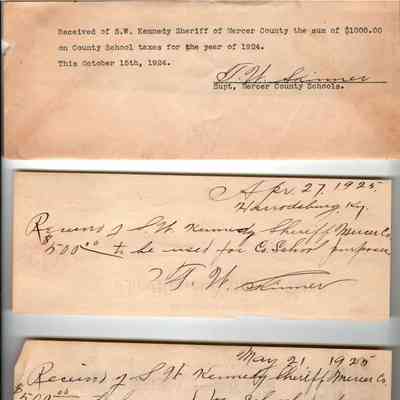 Received of S.W. Kennedy Sheriff of Mercer County the sum of $1000.00
on County School taxes for the year of 1924.
This October 15th, 1924.
T. W. Skinner
Supt, Mercer County Schools.
Apr 27, 1925
Harrodsburg, Ky.
Received of S W Kennedy Sheriff Mercer Co
$500.00 to be used for Co. School purposes
T. W. Skinner
May 21 1925
Received of S W Kennedy Sheriff Mercer Co.
$500.00 to be used for School